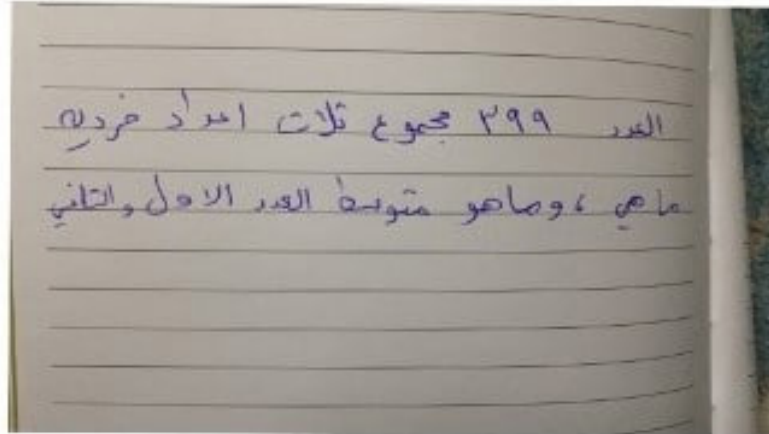 العدد ٣٩٩ مجموع ثلاث اعداد فردية
ما هي ، وماهو متوسط العدد الاول والثاني